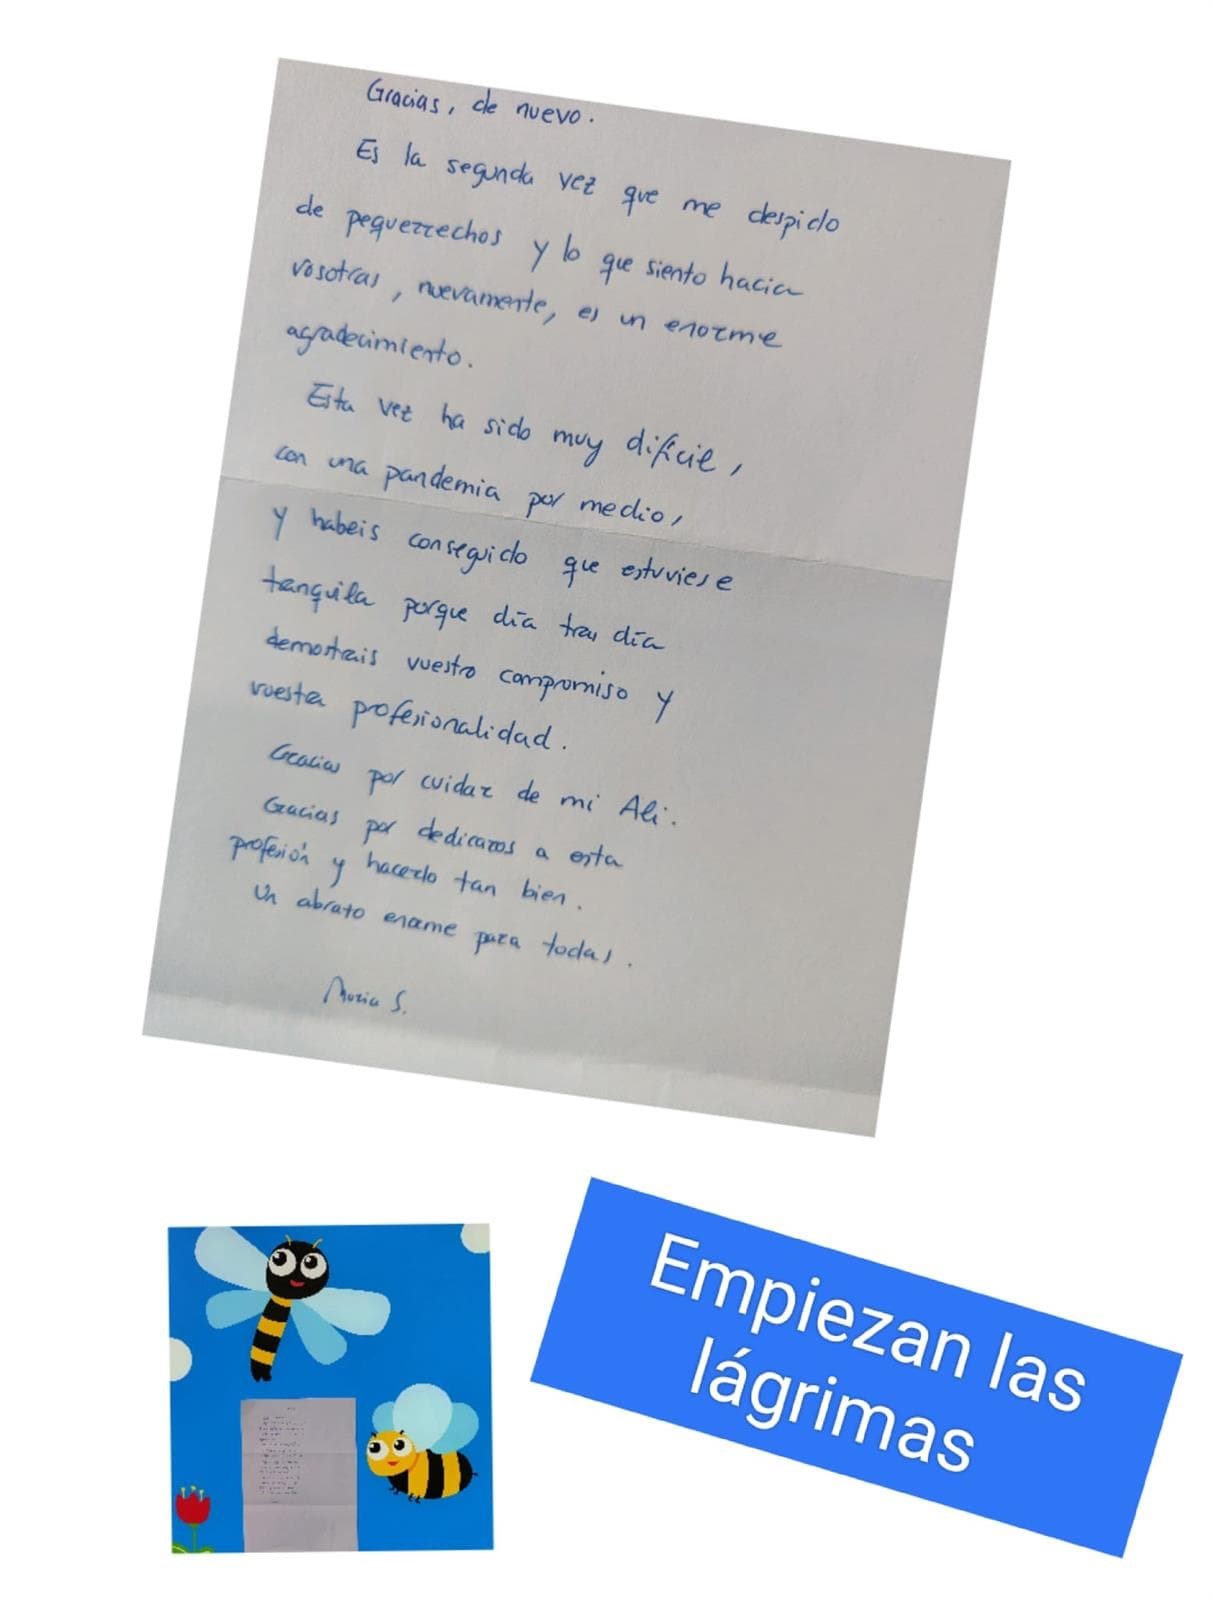 Gracias, de nuevo.
Es la segunda vez que me despido
de pequerrechos y lo que siento hacia
vosotras, nuevamente, es un enorme
agradecimiento.
Esta vez ha sido muy difícil,
con una pandemia por medio,
y habeis conseguido que estuviese
tranquila porque día tras día
demostrais vuestro compromiso y
vuestra profesionalidad.
Gracias por cuidar de mi Ali.
Gracias por dedicaros a esta
profesión y hacerlo tan bien.
Un abrazo enorme para todas.
María S.
Empiezan las
lágrimas